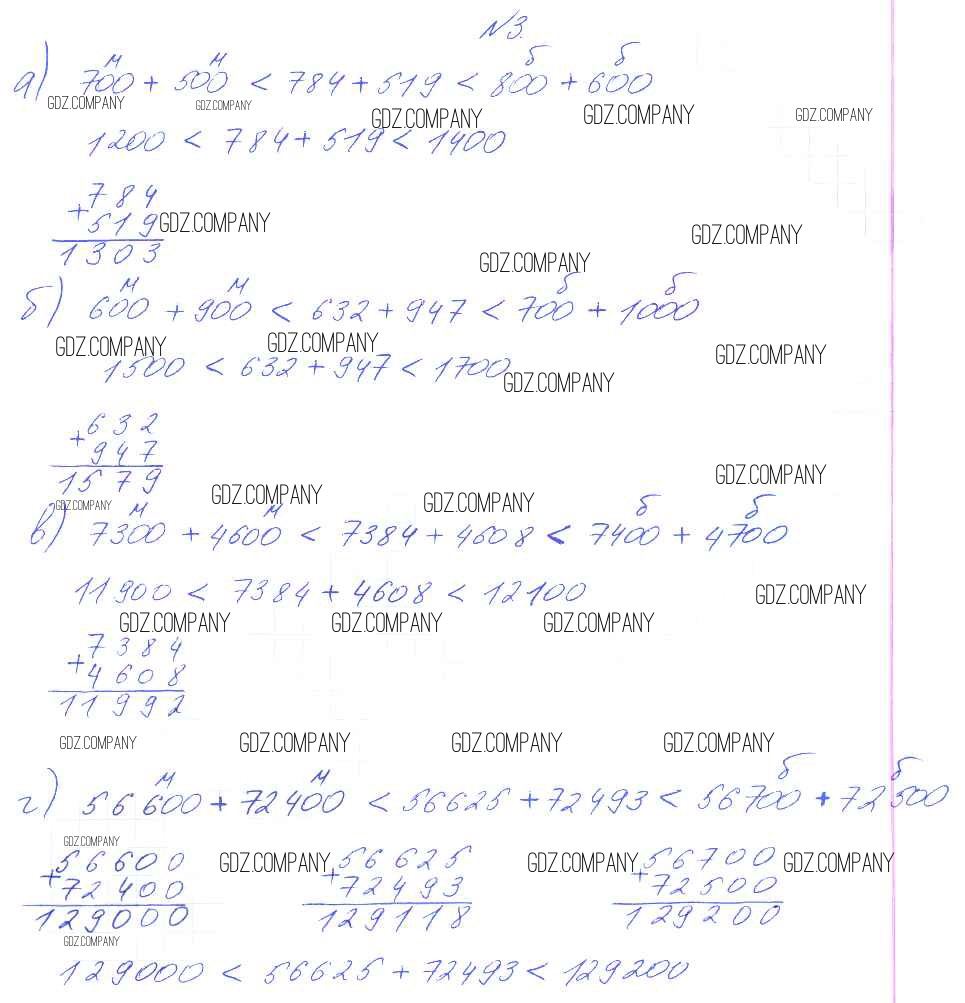 №3.
м м б б
а) 700 + 500 < 784 + 519 < 800 + 600
GDZ.COMPANY GDZ.COMPANY GDZ.COMPANY GDZ.COMPANY GDZ.COMPANY
1200 < 784 + 519 < 1400
784
+
519 GDZ.COMPANY
GDZ.COMPANY
1303
GDZ.COMPANY
м м б б
б) 600 + 900 < 632 + 947 < 700 + 1000
GDZ.COMPANY GDZ.COMPANY GDZ.COMPANY
1500 < 632 + 947 < 1700
GDZ.COMPANY
632
+
947
1579
GDZ.COMPANY
GDZ.COMPANY GDZ.COMPANY GDZ.COMPANY
м м б б
в) 7300 + 4600 < 7384 + 4608 < 7400 + 4700
11900 < 7384 + 4608 < 12100
GDZ.COMPANY
GDZ.COMPANY GDZ.COMPANY GDZ.COMPANY
7384
+
4608
11992
GDZ.COMPANY GDZ.COMPANY GDZ.COMPANY GDZ.COMPANY
м м б б
г) 56600 + 72400 < 56625 + 72493 < 56700 + 72500
GDZ.COMPANY
56600 GDZ.COMPANY 56625 GDZ.COMPANY 56700 GDZ.COMPANY
+ + +
72400 72493 72500
129000 129118 129200
GDZ.COMPANY
129000 < 56625 + 72493 < 129200